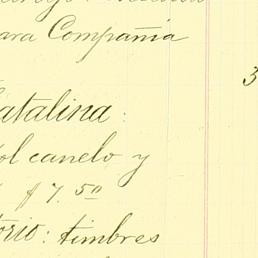 ara Compañia
3
atalina:
ol canelo y
$ 7.50
torio: timbres